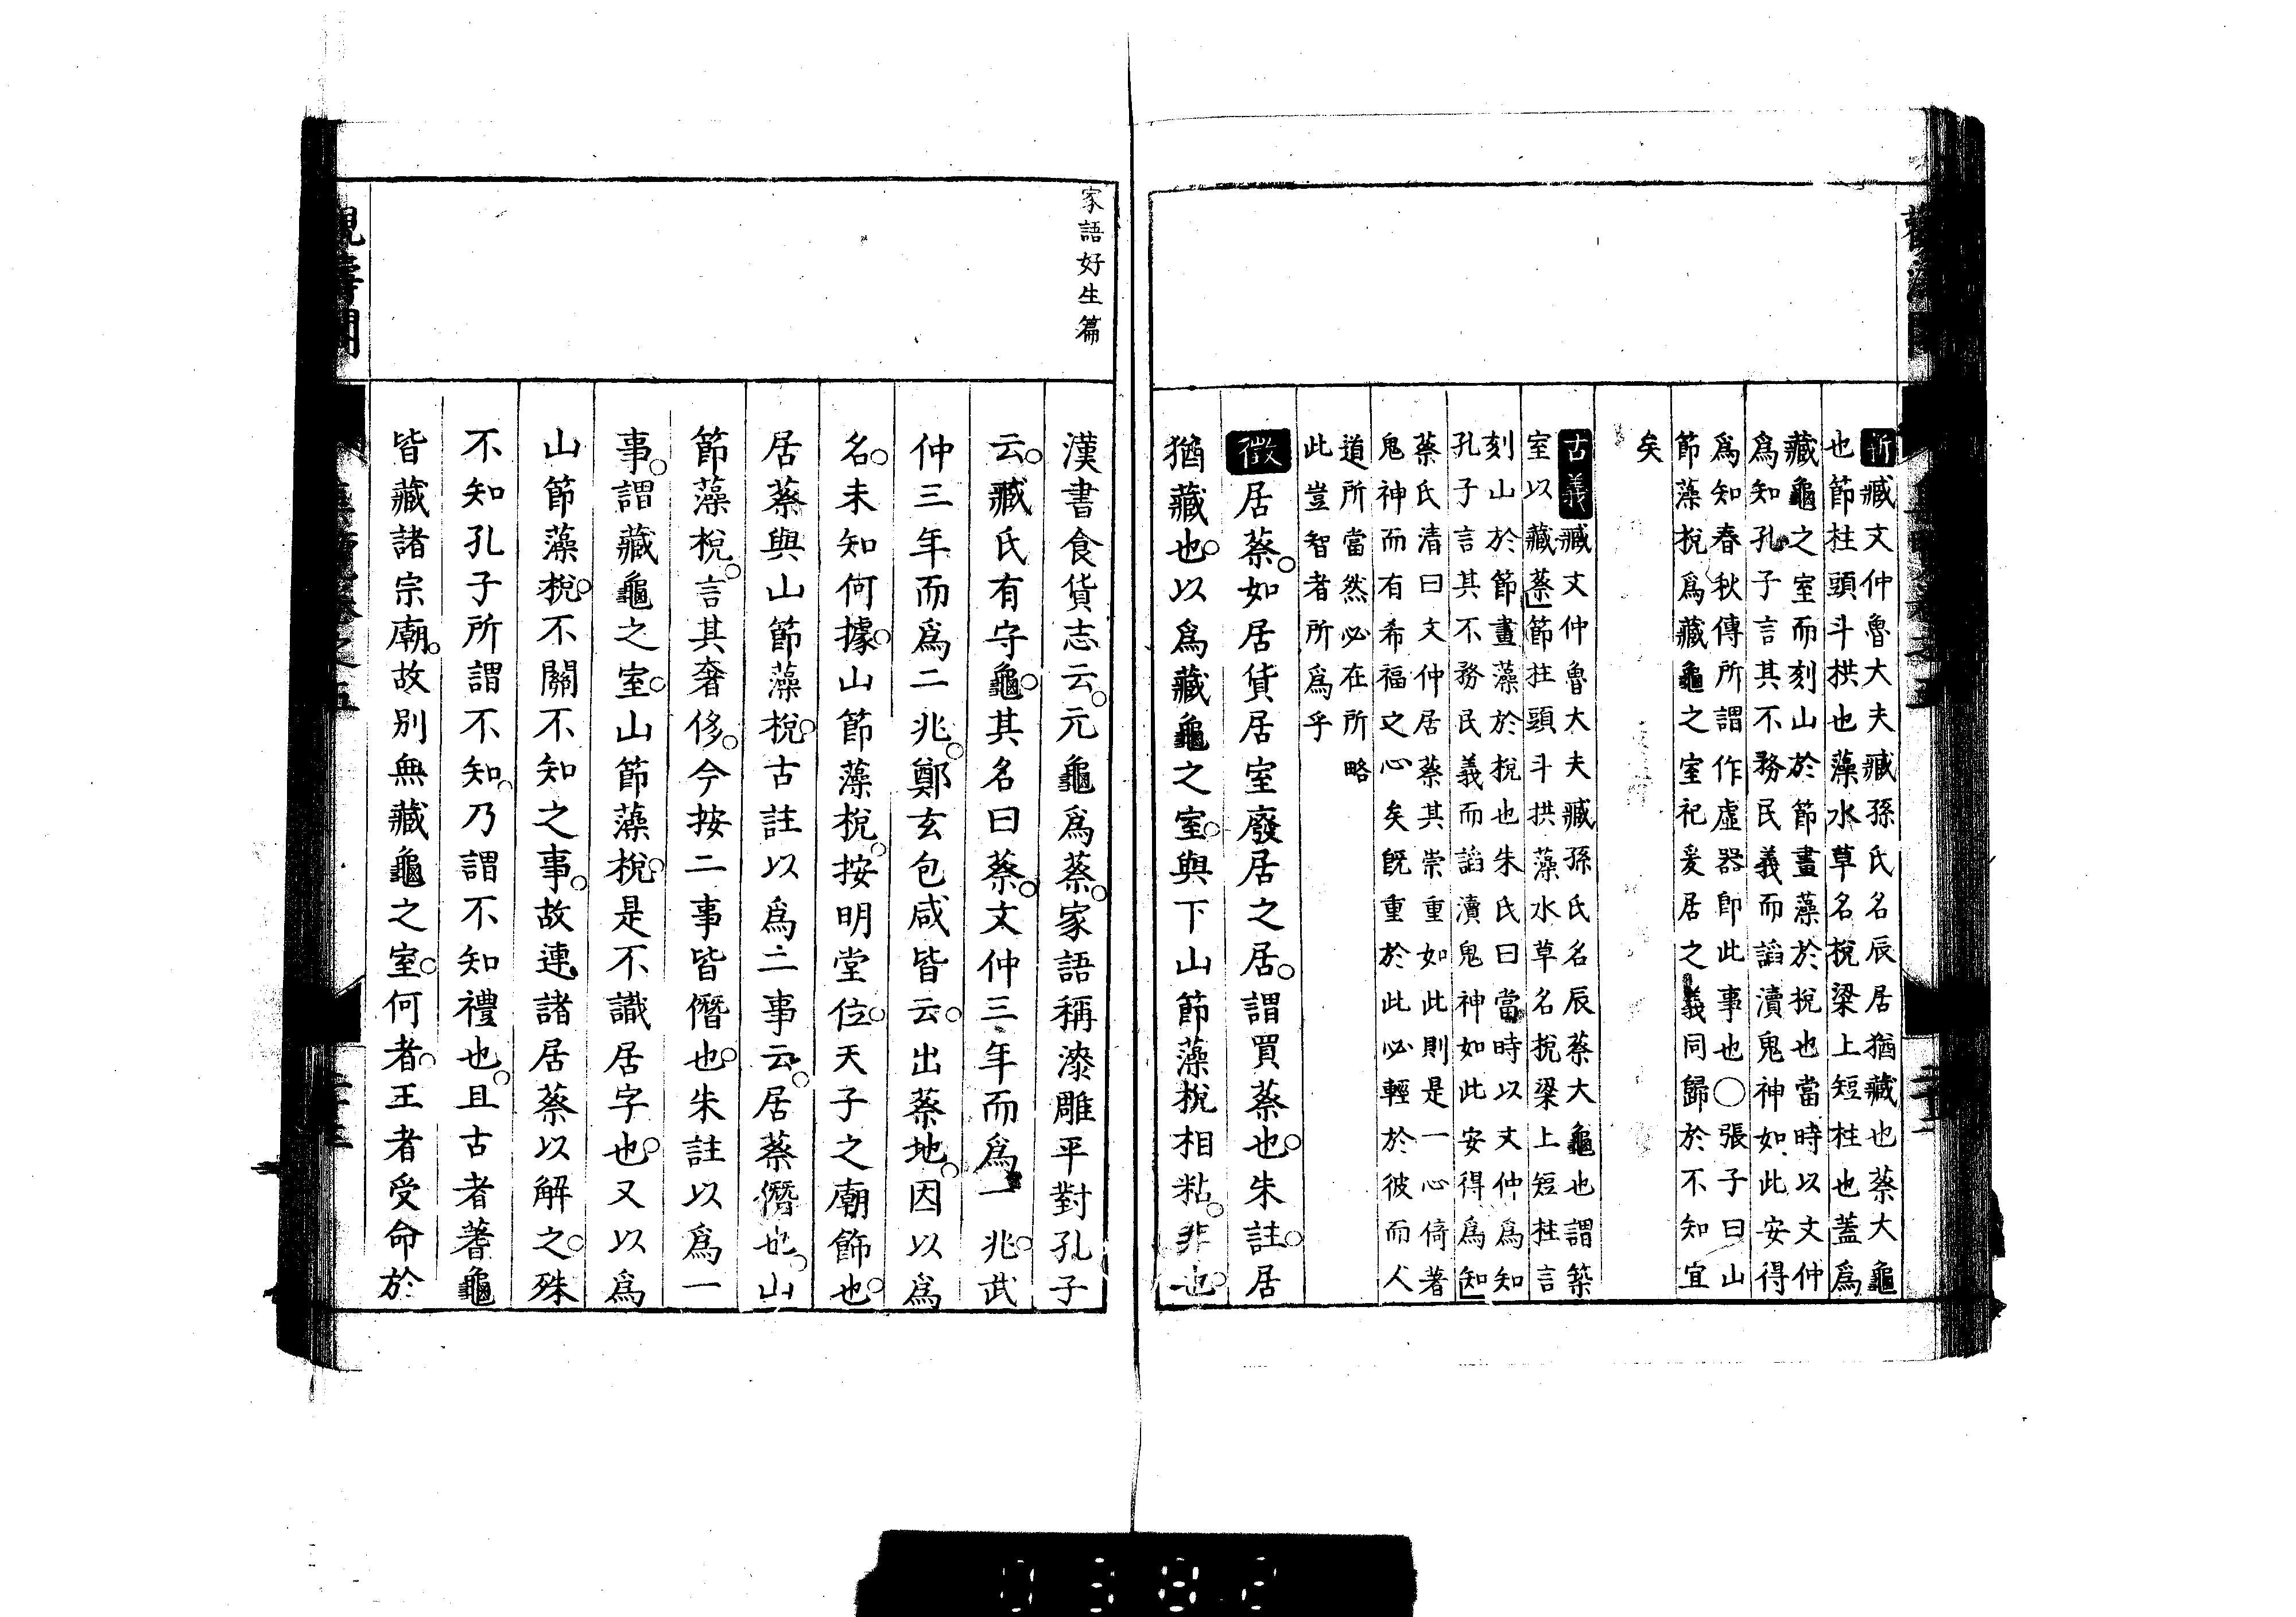 新臧文仲魯大夫臧孫氏名辰居猶藏也蔡大龜
也節柱頭斗拱也藻水草名梲梁上短柱也蓋爲
藏龜之室而刻山於節畫藻於梲也當時以文仲
爲知孔子言其不務民義而諂瀆鬼神如此安得
爲知春秋傳所謂作虛器卽此事也○張子曰山
節藻梲爲藏龜之室祀爰居之義同歸於不知宜
矣
古義臧文仲魯大夫臧孫氏名辰蔡大龜也謂築
室以藏蔡節柱頭斗拱藻水草名梲梁上短柱言
刻山於節畫藻於梲也朱氏曰當時以文仲爲知
孔子言其不務民義而諂瀆鬼神如此安得爲知
蔡氏清曰文仲居蔡其崇重如此則是一心倚著
鬼神而有希福之心矣旣重於此必輕於彼而人
道所當然必在所略
此豈智者所爲乎
徵居蔡。如居貨居室廢居之居。謂買蔡也。朱註。居
猶藏也。以爲藏龜之室。與下山節藻梲相粘。非也。
家語好生篇
漢書食貨志云。元龜爲蔡。家語稱漆雕平對孔子
云。臧氏有守龜。其名曰蔡。文仲三年而爲一兆。武
仲三年而爲二兆。鄭玄包咸皆云。出蔡地。因以爲
名。未知何據。山節藻梲。按明堂位。天子之廟飾也。
居蔡與山節藻梲。古註以爲二事云。居蔡僭也。山
節藻梲。言其奢侈。今按二事皆僭也。朱註以爲一
事。謂藏龜之室。山節藻梲。是不識居字也。又以爲
山節藻梲。不關不知之事。故連諸居蔡以解之。殊
不知孔子所謂不知。乃謂不知禮也。且古者蓍龜
皆藏諸宗廟。故别無藏龜之室。何者。王者受命於
0382